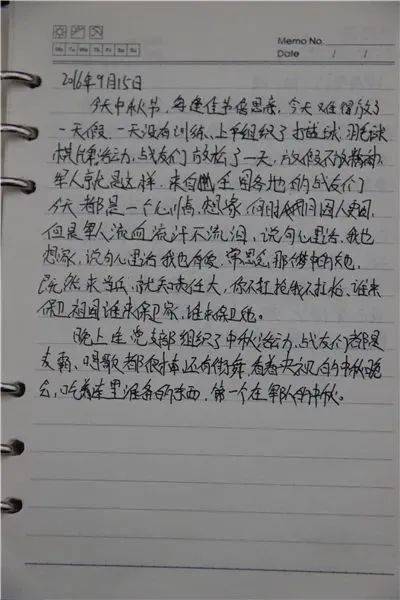 Memo No.
Mo Tu We Th Fr Sa Su
Date / /
2016年9月15日
今天中秋节,每逢佳节倍思亲,今天难得放了
一天假,一天没有训练、上午组织了打篮球、羽毛球
棋牌活动,战友们放松了一天,放假不放精神,
军人就是这样,来自全国各地的战友们
今天都是一个心情,想家,何时月圆人更圆,
但是军人流血流汗不流泪,说句心里话,我也
想家,说句心里话我也有爱,常思念那梦中的她,
既然来当兵,就知责任大,你不扛枪我不扛枪、谁来
保卫祖国谁来保卫家,谁来保卫她。
晚上连党支部组织了中秋活动,战友们都是
麦霸、唱歌都很棒还有街舞,看着央视的中秋晚
会,吃着连里准备的东西,第一个在军人的中秋。